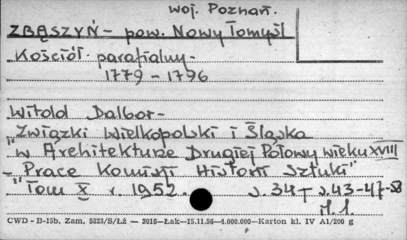 woj. Poznań.
ZBĄSZYŃ - pow. Nowy Tomyśl
Kościół parafialny -
1779 - 1796
Witold Dalbor -
"Związki Wielkopolski i Śląska
w Architekturze Drugiej Połowy wieku XVIII
- Prace Komisji Historii Sztuki"
"Tom X r. 1952. s. 34 - s. 43-47-58
CWD - B-15b. Zam. 5823/S/Łż — 3016—Łak—15.11.56—4.000.000—Karton kl. IV A1/200 g